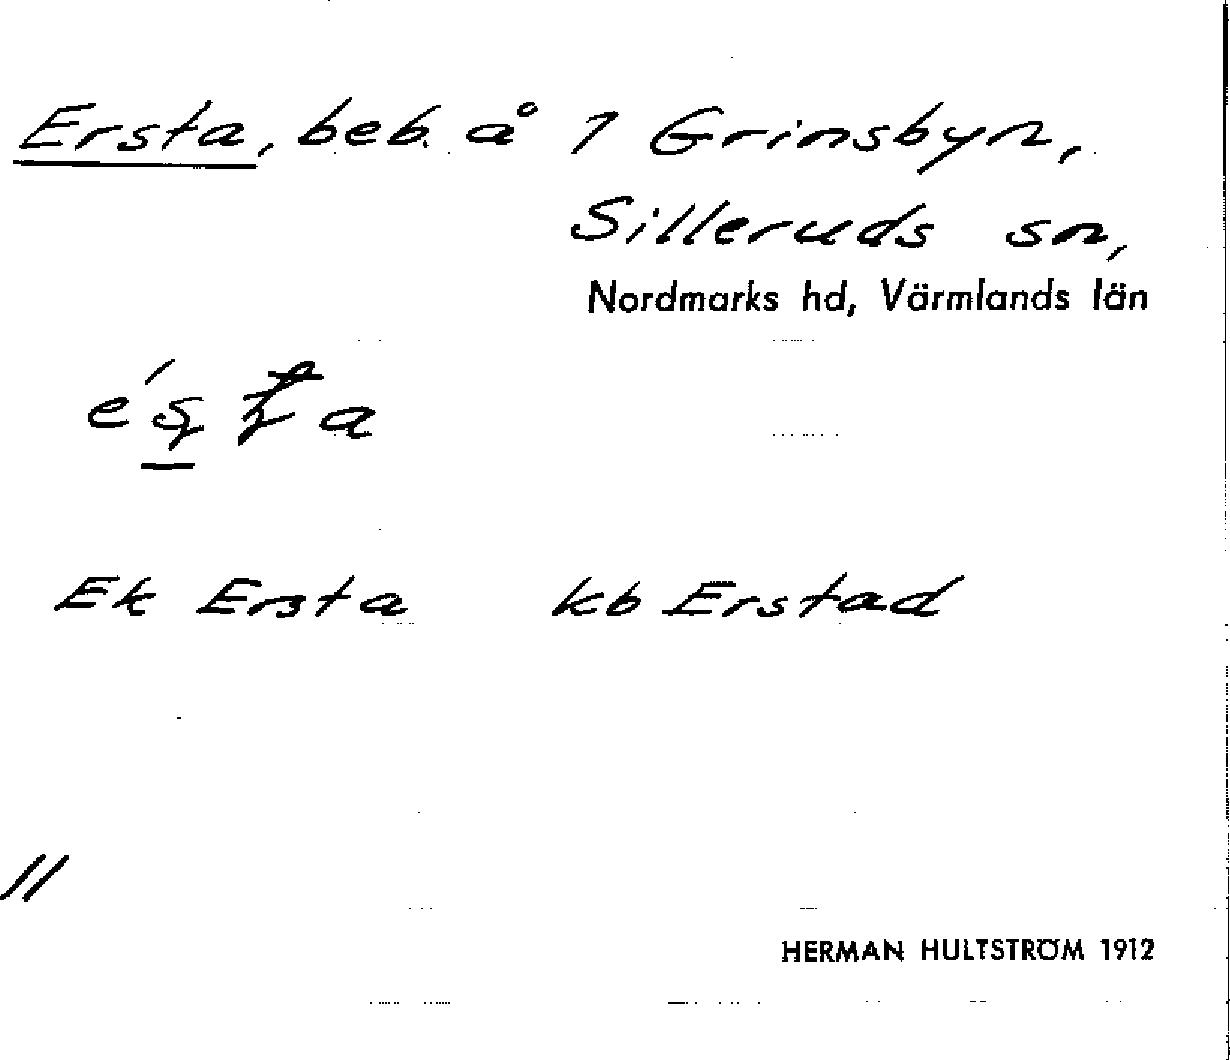 Ersta, beb. å 1 Grinsbyn,
Silleruds sn,
Nordmarks hd, Värmlands län
Ek Ersta kb Erstad
11
HERMAN HULTSTRÖM 1912